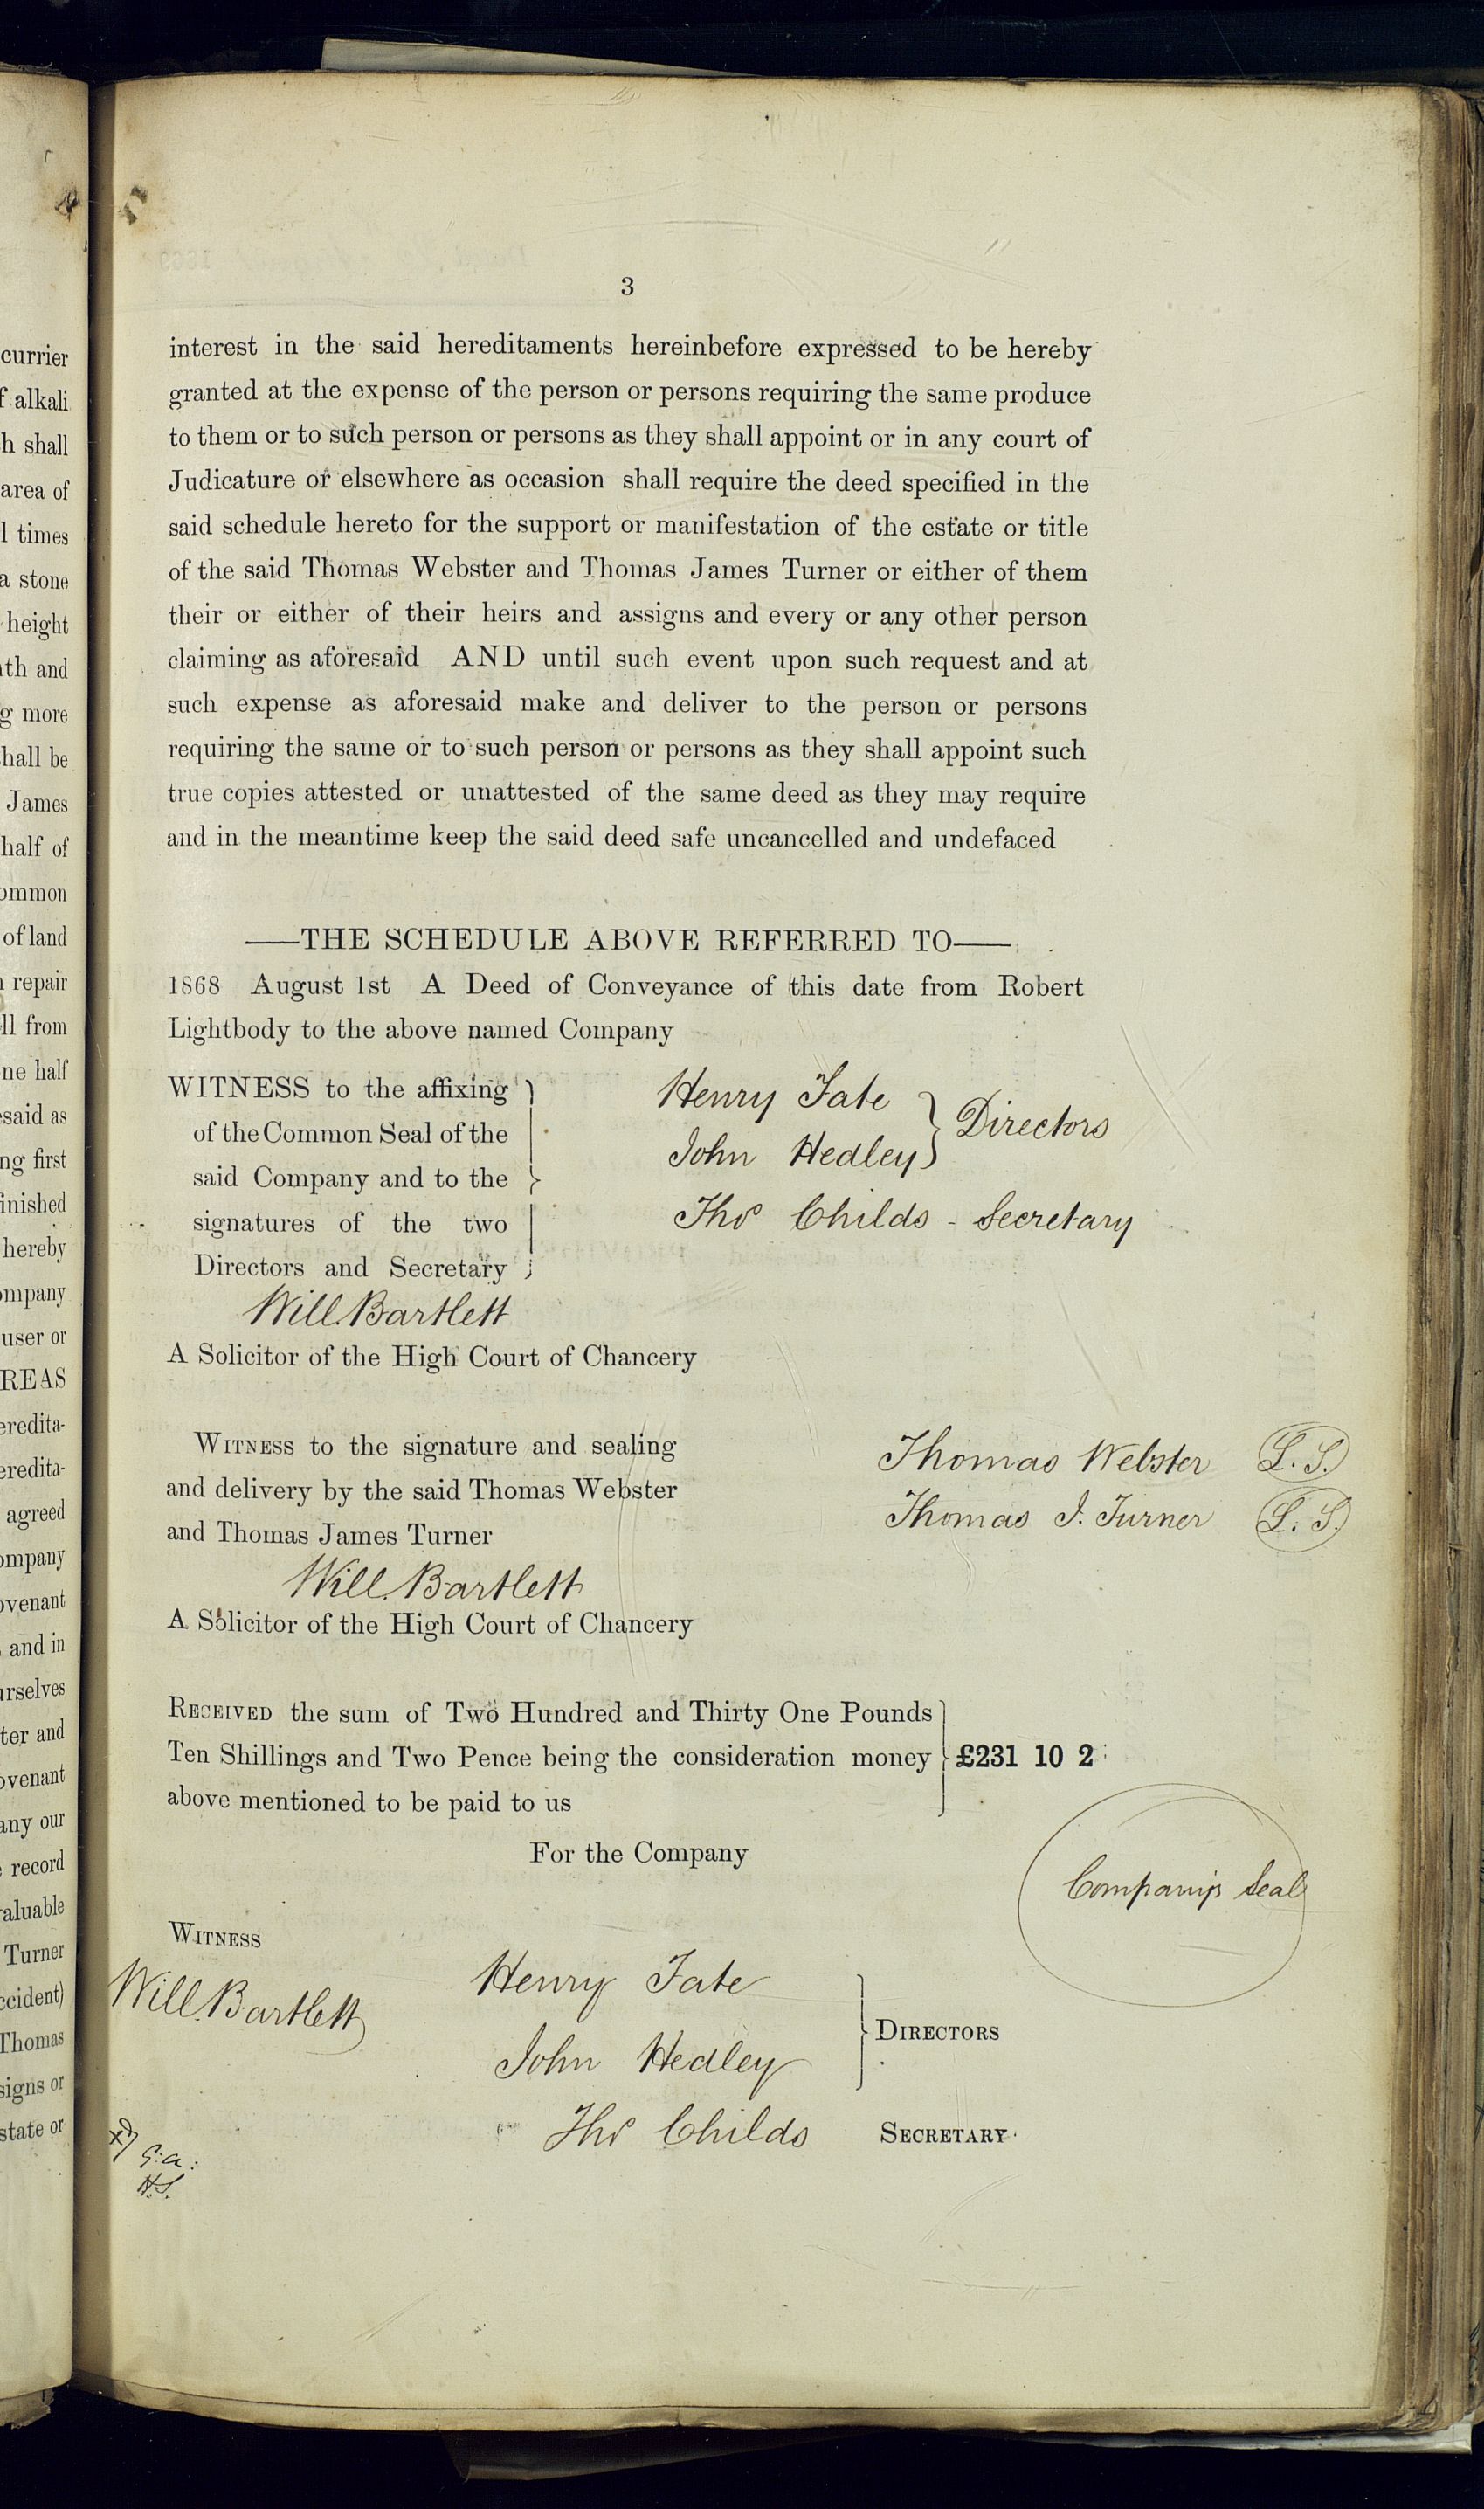 3
interest in the said hereditaments hereinbefore expressed to be hereby
granted at the expense of the person or persons requiring the same produce
to them or to such person or persons as they shall appoint or in any court of
Judicature or elsewhere as occasion shall require the deed specified in the
said schedule hereto for the support or manifestation of the estate or title
of the said Thomas Webster and Thomas James Turner or either of them
their or either of their heirs and assigns and every or any other person
claiming as aforesaid AND until such event upon such request and at
such expense as aforesaid make and deliver to the person or persons
requiring the same or to such person or persons as they shall appoint such
true copies attested or unattested of the same deed as they may require
and in the meantime keep the said deed safe uncancelled and undefaced
—THE SCHEDULE ABOVE REFERRED TO—
1868 August 1st A Deed of Conveyance of this date from Robert
Lightbody to the above named Company
WITNESS to the affixing
of the Common Seal of the
said Company and to the
signatures of the two
Directors and Secretary
Henry Tate
John Hedley
Directors
Thos Childs - Secretary
Will. Bartlett
A Solicitor of the High Court of Chancery
WITNESS to the signature and sealing
and delivery by the said Thomas Webster
and Thomas James Turner
Thomas Webster L. S.
Thomas J. Turner L. S.
Will. Bartlett
A Solicitor of the High Court of Chancery
RECEIVED the sum of Two Hundred and Thirty One Pounds
Ten Shillings and Two Pence being the consideration money £231 10 2
above mentioned to be paid to us
For the Company
Company's Seal
WITNESS
Will. Bartlett
Henry Tate
John Hedley
DIRECTORS
Thos Childs SECRETARY
G.a:
H.S.
currier
f alkali
h shall
area of
l times
a stone
height
th and
g more
hall be
James
half of
ommon
of land
repair
ll from
ne half
said as
ng first
inished
hereby
ompany
user or
REAS
eredita-
eredita-
agreed
ompany
ovenant
and in
urselves
ter and
ovenant
any our
record
aluable
Turner
ccident)
Thomas
signs or
state or